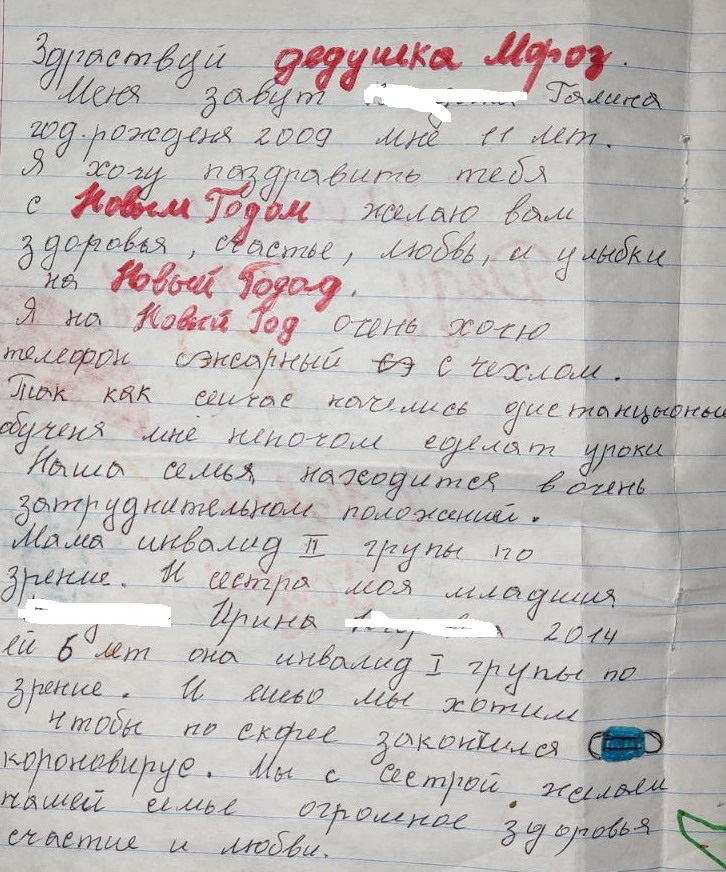 Здраствуй дедушка Мороз.
Меня завут Галина
год.рожденя 2009 мне 11 лет.
Я хочу паздравить тебя
с Новым Годом желаю вам
здоровья, счастье, любвь, и улыбки
на Новый Годод.
Я на Новый Год очень хочю
телефон сэнсарный сэ с чехлом.
Так как сейчас начелись дистанцыоные
обученя мне непочом сделат уроки
Наша семья находится в очень
затруднительном положений.
Мама инвалид II групы по
зрение. И сестра моя младшия
Ирина 2014
ей 6 лет она инвалид I групы по
зрение. И ешьо мы хотим
чтобы по скорее закончился
короновирус. Мы с сестрой желаем
нашей семье огромное здоровья
счастие и любви.